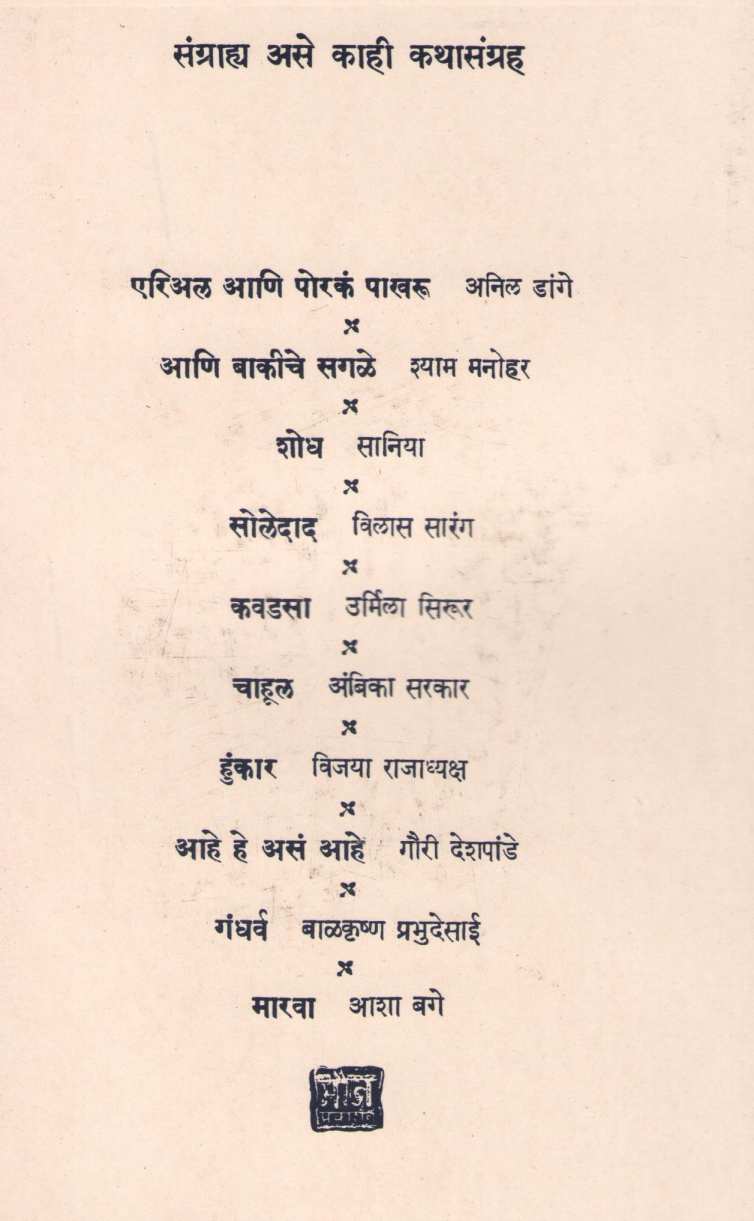 संग्राह्य असे काही कथासंग्रह
एरिअल आणि पोरकं पाखरू अनिल डांगे
आणि बाकीचे सगळे श्याम मनोहर
शोध सानिया
सोलेदाद विलास सारंग
कवडसा उर्मिला सिरूर
चाहूल अंबिका सरकार
हुंकार विजया राजाध्यक्ष
आहे हे असं आहे गौरी देशपांडे
गंधर्व बाळकृष्ण प्रभुदेसाई
मारवा आशा बगे
मौज